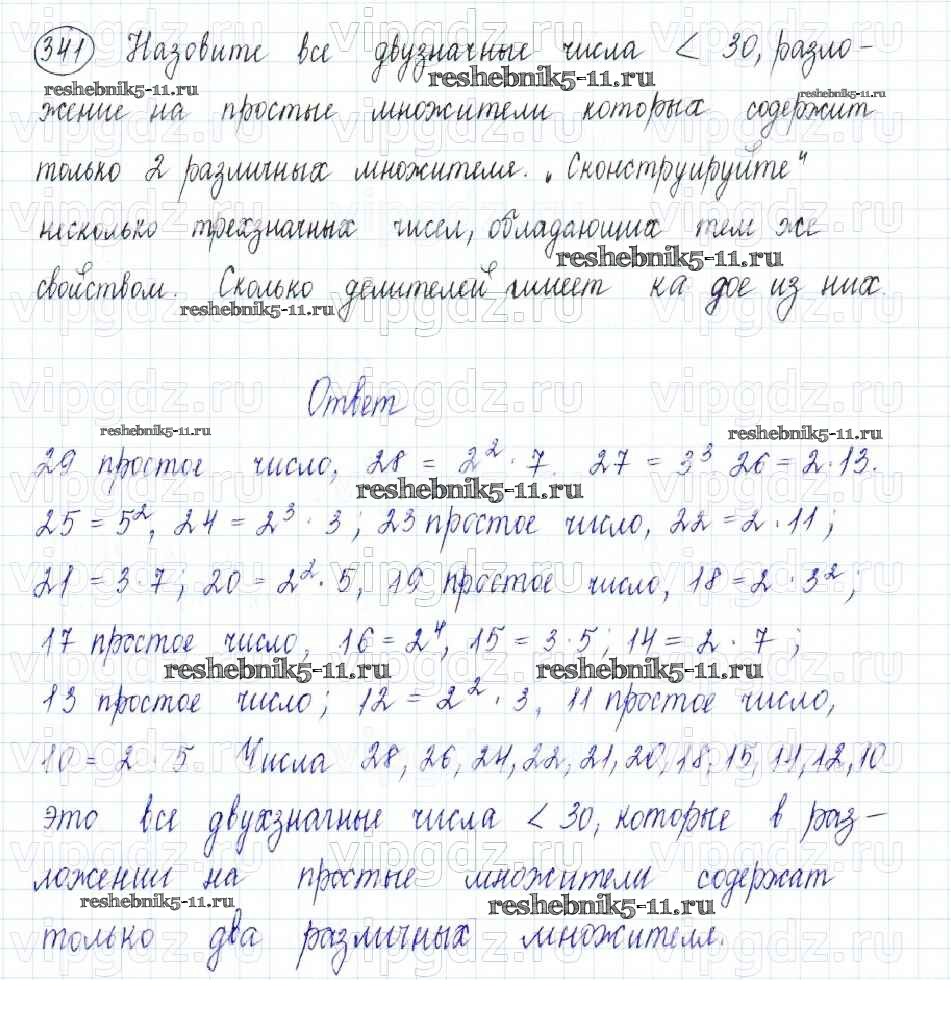 341 Назовите все двузначные числа < 30, разло-
жение на простые множители которых содержит
только 2 различных множителя. „Сконструируйте"
несколько трехзначных чисел, обладающих тем же
свойством. Сколько делителей имеет ка дое из них.
Ответ
29 простое число, 28 = 2² · 7. 27 = 3³ 26 = 2 · 13.
25 = 5², 24 = 2³ · 3; 23 простое число, 22 = 2 · 11;
21 = 3 · 7; 20 = 2² · 5, 19 простое число, 18 = 2 · 3²;
17 простое число, 16 = 2⁴, 15 = 3 · 5; 14 = 2 · 7;
13 простое число; 12 = 2² · 3, 11 простое число,
10 = 2 · 5 Числа 28, 26, 24, 22, 21, 20, 18, 15, 14, 12, 10
это все двухзначные числа < 30, которые в раз-
ложении на простые множители содержат
только два различных множителя.
reshebnik5-11.ru
vipgdz.ru